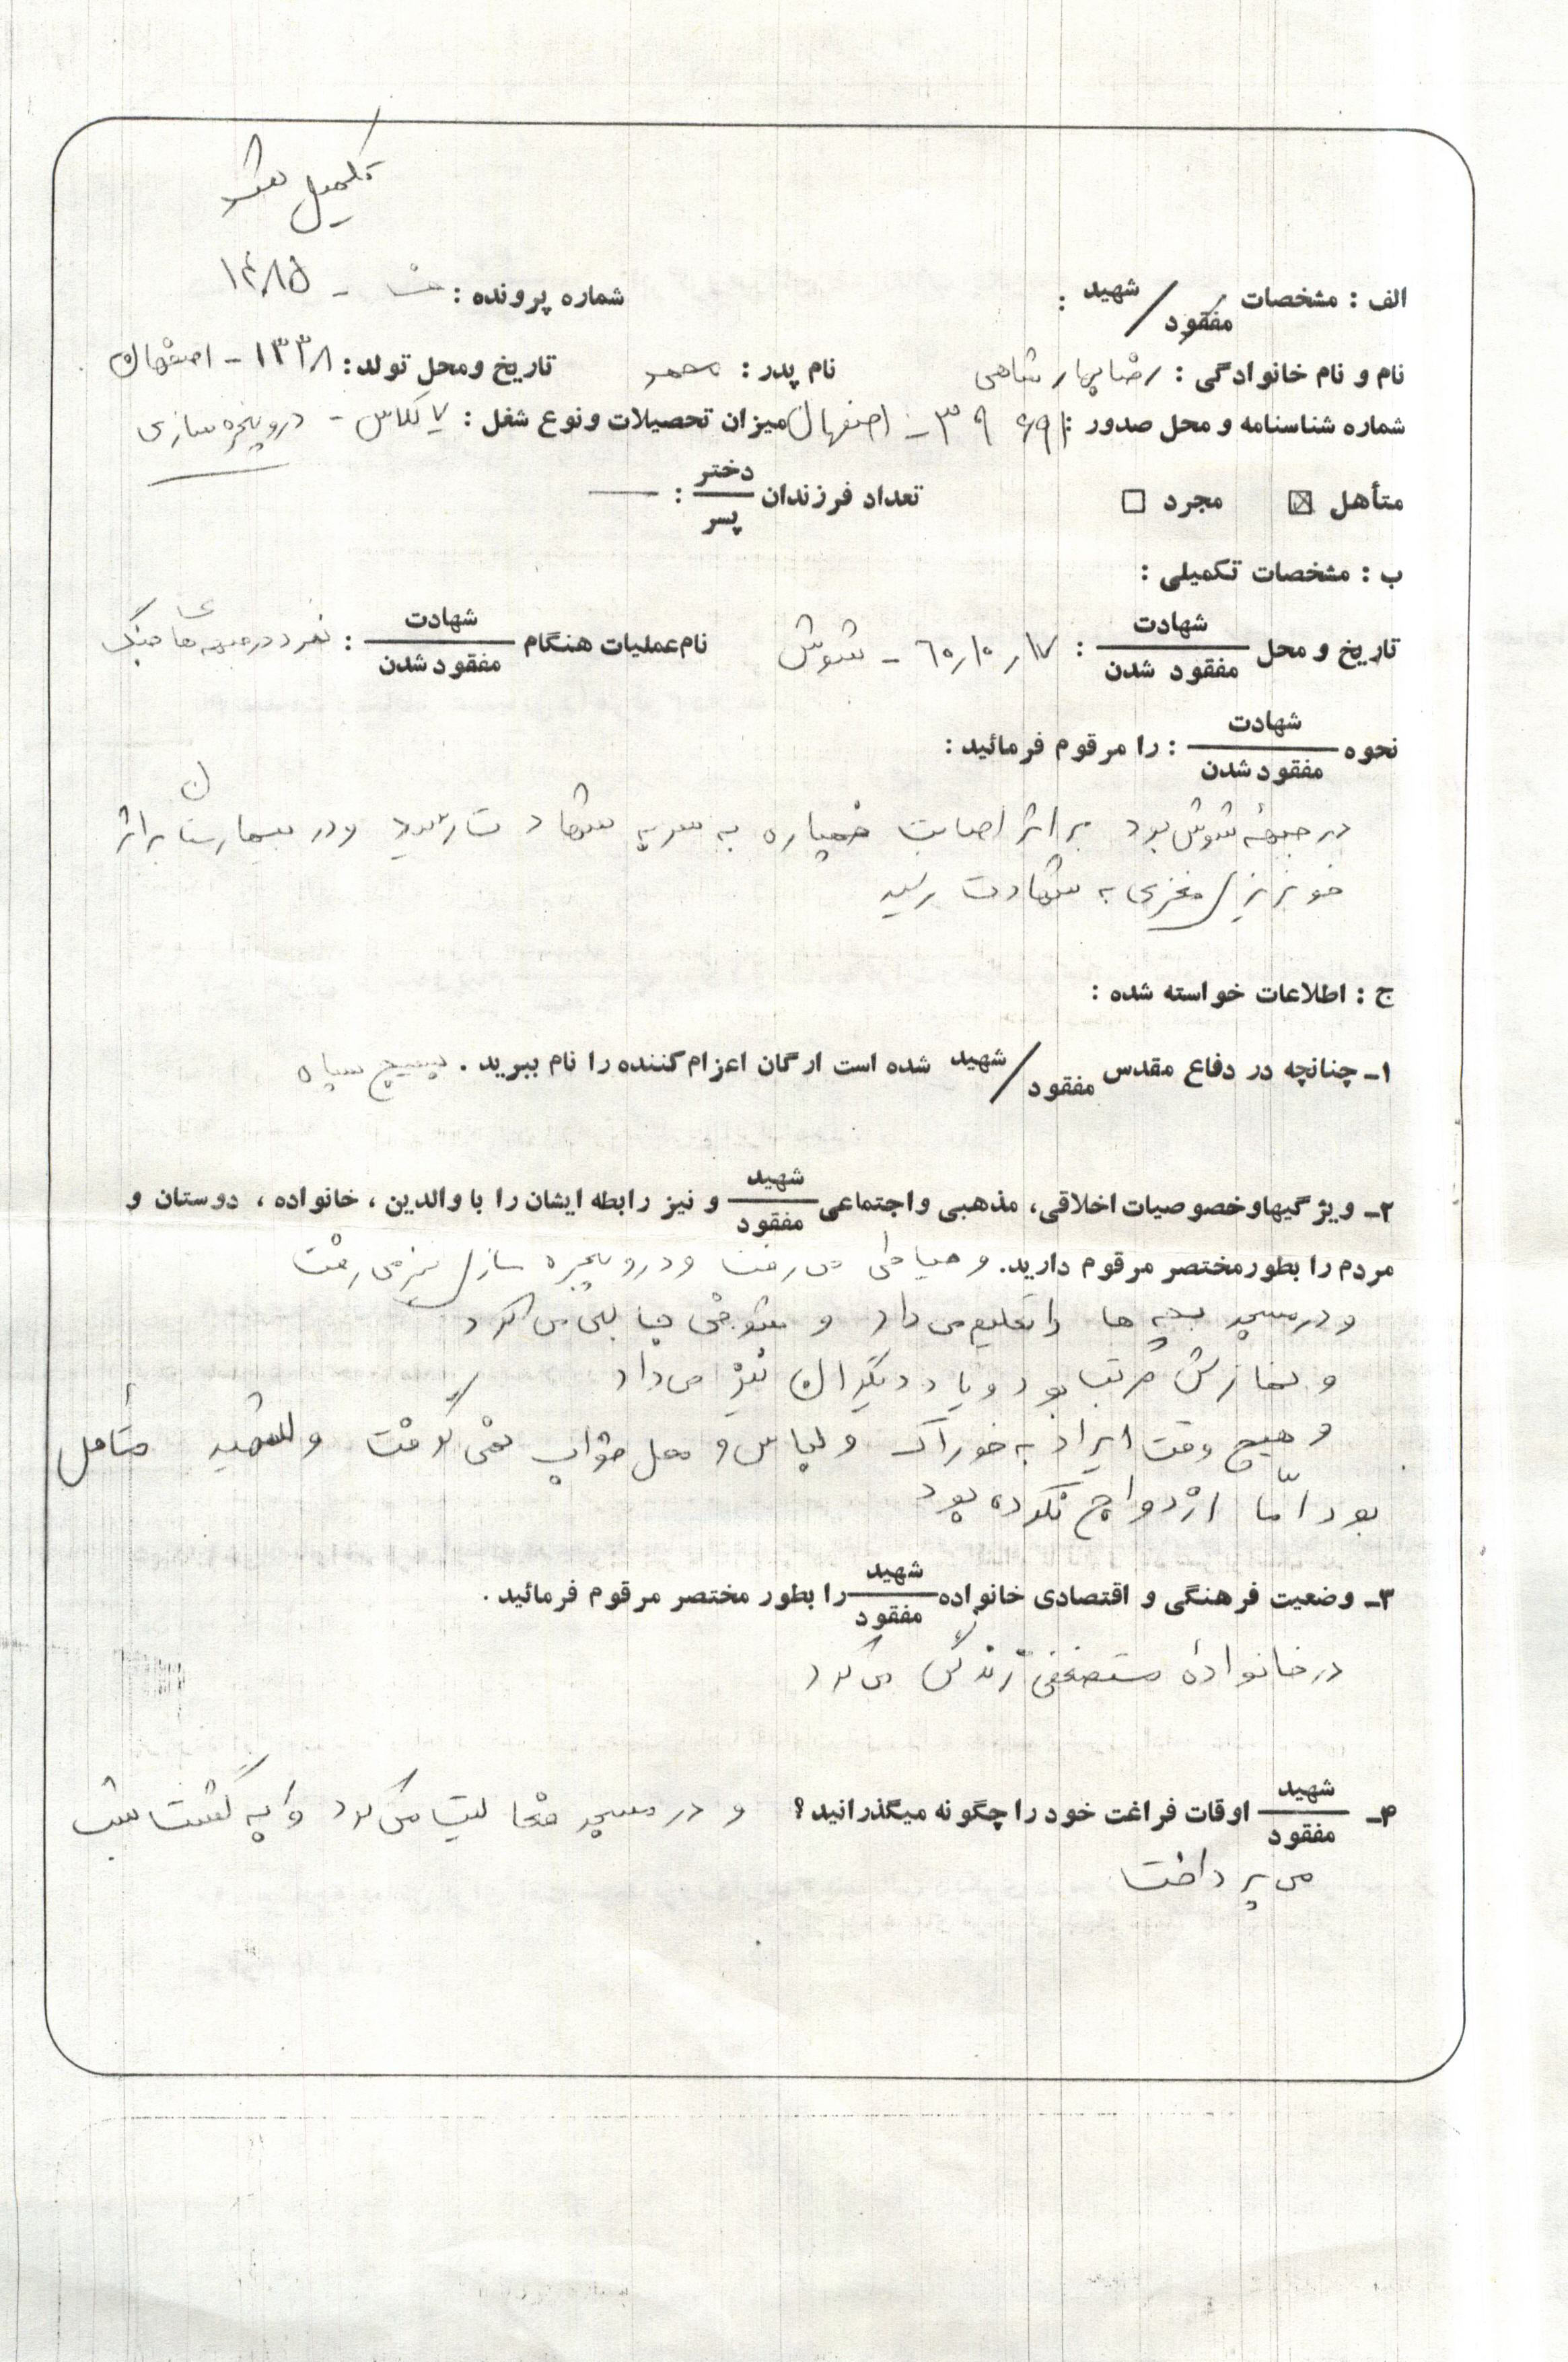 تکمیل شد
الف : مشخصات شهید / مفقود : شماره پرونده : ش - ۱۴۰۸۵
نام و نام خانوادگی : رضا بهارشاهی نام پدر : محمد تاریخ ومحل تولد : ۱۳۳۸ - اصفهان
شماره شناسنامه و محل صدور : - اصفهان میزان تحصیلات ونوع شغل : کلاس - دروپنجره سازی
متأهل ☒ مجرد ☐ تعداد فرزندان دختر / پسر : —
ب : مشخصات تکمیلی :
تاریخ و محل شهادت / مفقود شدن : ۱۷ ر ۱۰ ر ۶۰ - شوش نام عملیات هنگام شهادت / مفقود شدن : نبرد در جبهه های جنگ
نحوه شهادت / مفقود شدن : را مرقوم فرمائید :
در جبههٔ شوش بود براثر اصابت خمپاره به سر به شهادت رسید ودر بیمارستان براثر
خونریزی مغزی به شهادت رسید
ج : اطلاعات خواسته شده :
۱ـ چنانچه در دفاع مقدس شهید / مفقود شده است ارگان اعزام کننده را نام ببرید . بسیج سپاه
۲ـ ویژگیهاوخصوصیات اخلاقی، مذهبی واجتماعی شهید / مفقود و نیز رابطه ایشان را با والدین ، خانواده ، دوستان و
مردم را بطورمختصر مرقوم دارید. و خیاطی می رفت ودرو پنجره سازی نیز می رفت
ودرمسجد بچه ها را تعلیم می داد و می کرد
و نمازش مرتب بود و یاد دیگران نیز می داد
و هیچ وقت ایراد به خوراک و لباس و محل خواب نمی گرفت و شهید متأهل
بود امّا ازدواج نکرده بود
۳ـ وضعیت فرهنگی و اقتصادی خانواده شهید / مفقود را بطور مختصر مرقوم فرمائید .
در خانوادهٔ مستضعفی زندگی می کرد
۴ـ شهید / مفقود اوقات فراغت خود را چگونه میگذرانید؟ و در مسجد فعالیت می کرد و به گشت شب
می پرداخت